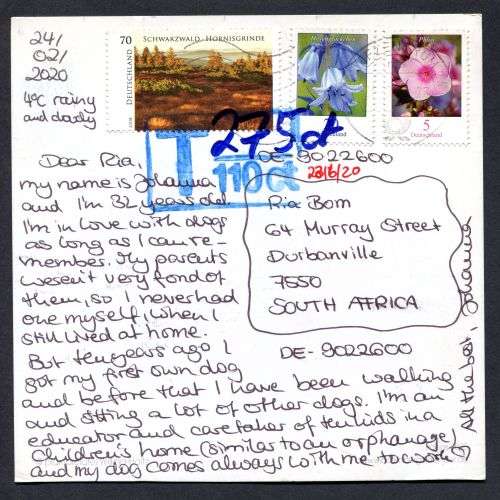 24/
02/
2020
4°C rainy
and cloudy
70
SCHWARZWALD · HORNISGRINDE
DEUTSCHLAND
Hasenglöckchen
Deutschland
Phlox
5
Deutschland
T
275 ct
110 ct
DE-9022600
23/6/20
Ria Bom
64 Murray Street
Durbanville
7550
SOUTH AFRICA
DE-9022600
Dear Ria,
my name is Johanna
and I'm 32 years old.
I'm in love with dogs
as long as I can re-
member. My parents
weren't very fond of
them, so I never had
one myself, when I
still lived at home.
But ten years ago I
got my first own dog
and before that I have been walking
and sitting a lot of other dogs. I'm an
educator and caretaker of ten kids in a
children's home (similar to an orphanage)
and my dog comes always with me to work ♡
All the best, Johanna